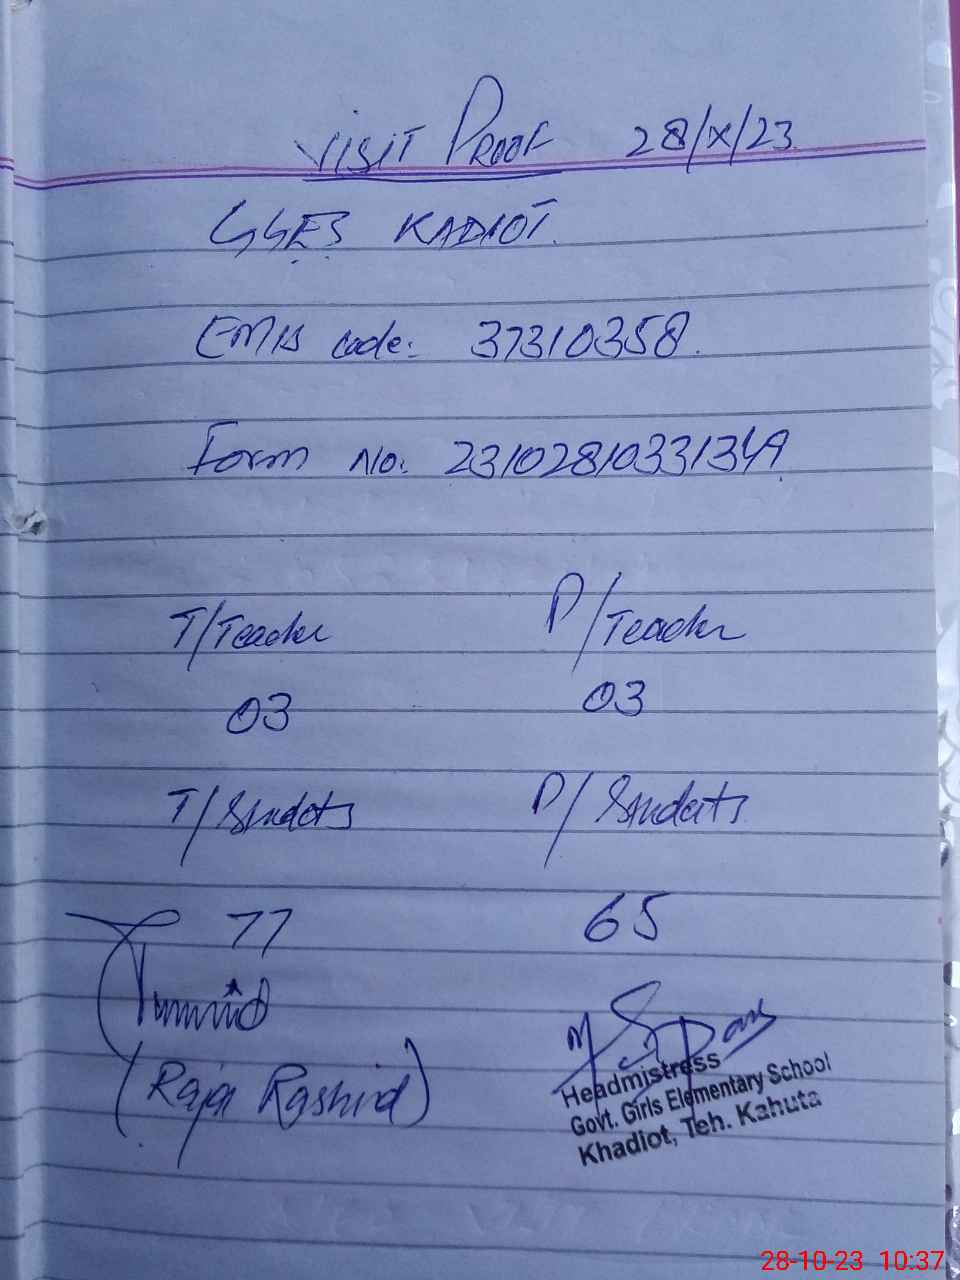 VISIT PROOF 28/X/23
GGES KADIOT.
EMIS code: 37310358.
Form No. 231028103313419
T/Teacher P/Teacher
03 03
T/Students P/Students
77 65
(Raja Rashid)
Headmistress
Govt. Girls Elementary School
Khadiot, Teh. Kahuta
28-10-23 10:37